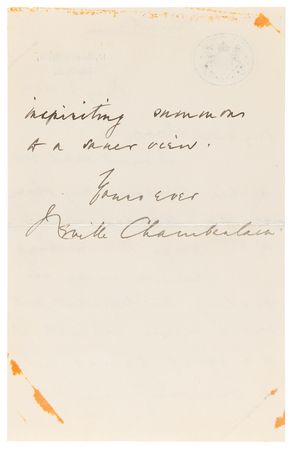 inspiriting summons
to a saner view.
Yours ever
Neville Chamberlain.